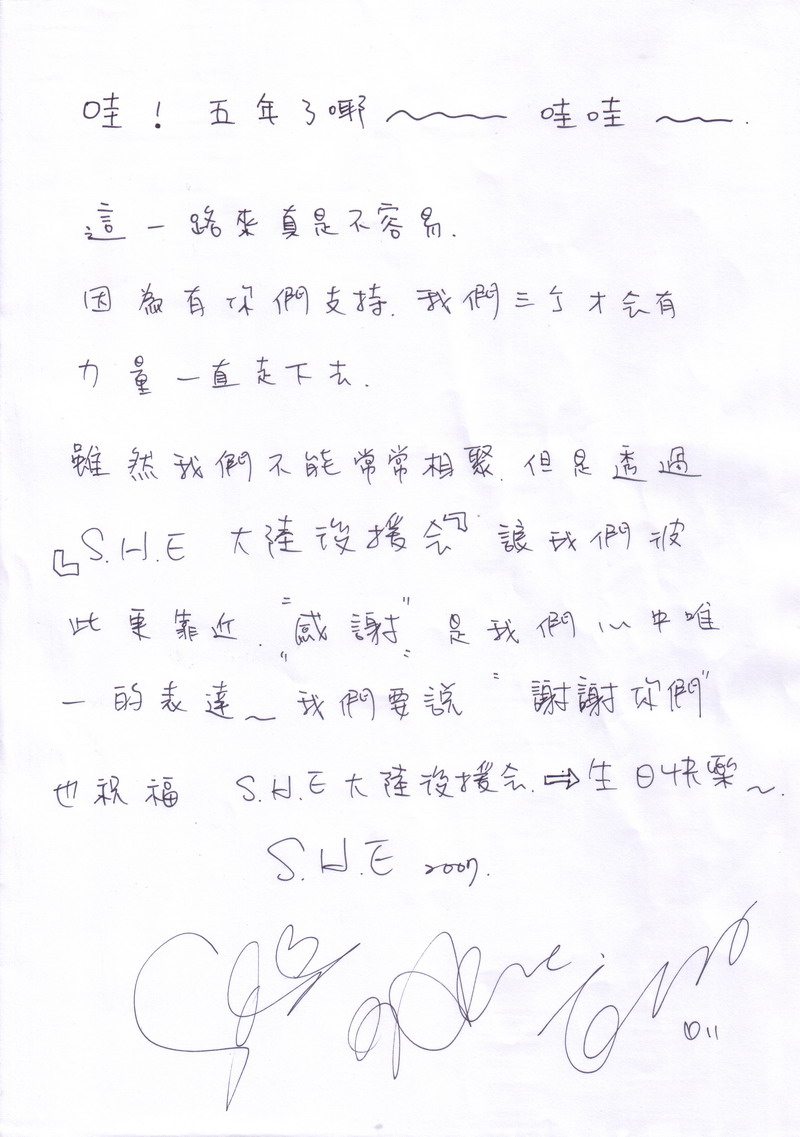 哇！五年了耶～～～ 哇哇～～.
這一路來真是不容易.
因為有你們支持.我們三個才会有
力量一直走下去.
雖然我們不能常常相聚.但是透過
『S.H.E 大陸後援会』讓我們彼
此更靠近."感謝"是我們心中唯
一的表達~我們要說"謝謝你們"
也祝福 S.H.E大陸後援会.⇒生日快樂~.
S.H.E 2007.